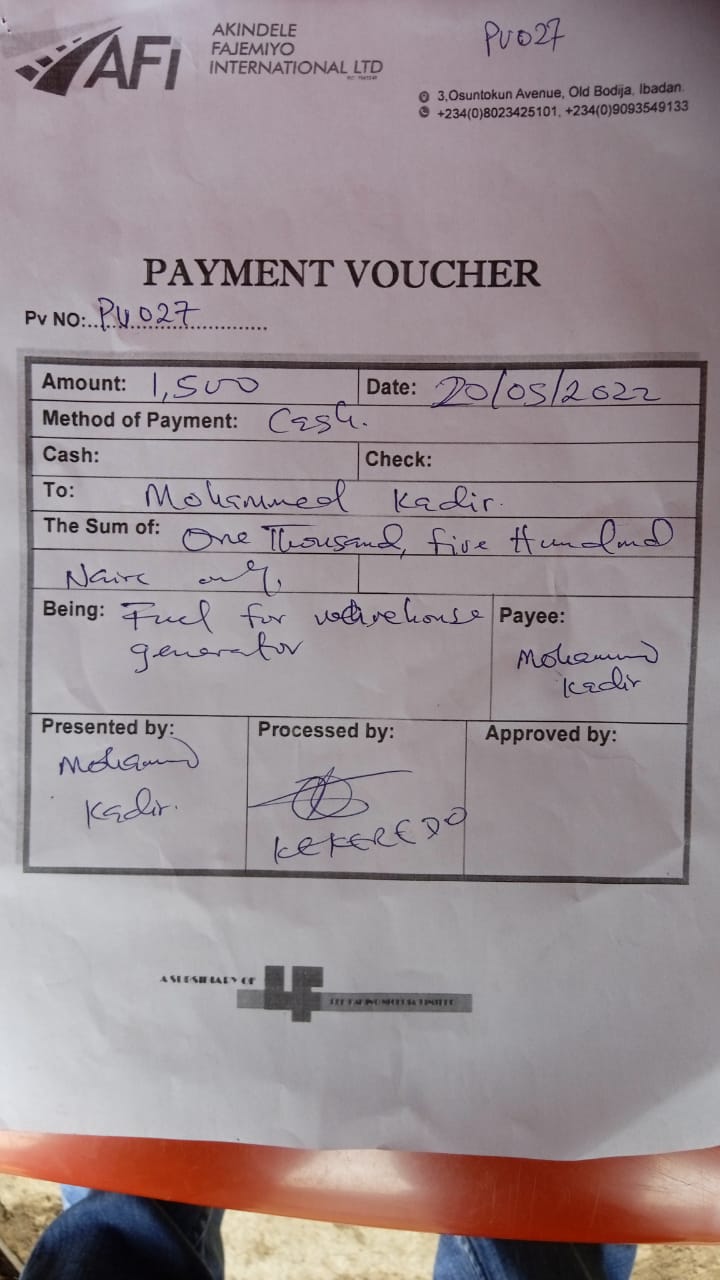 AFI
AKINDELE
FAJEMIYO
INTERNATIONAL LTD
PV027
3,Osuntokun Avenue, Old Bodija, Ibadan.
+234(0)8023425101, +234(0)9093549133
PAYMENT VOUCHER
Pv NO:..PV027
Amount: 1,500 Date: 20/05/2022
Method of Payment: Cash.
Cash: Check:
To: Mohammed Kadir.
The Sum of: One Thousand, five Hundred
Naira only
Being: Fuel for warehouse Payee:
generator Mohammed
Kadir
Presented by: Processed by: Approved by:
Mohammed
Kadir. KEKEREDO
A SUBSIDIARY OF LF